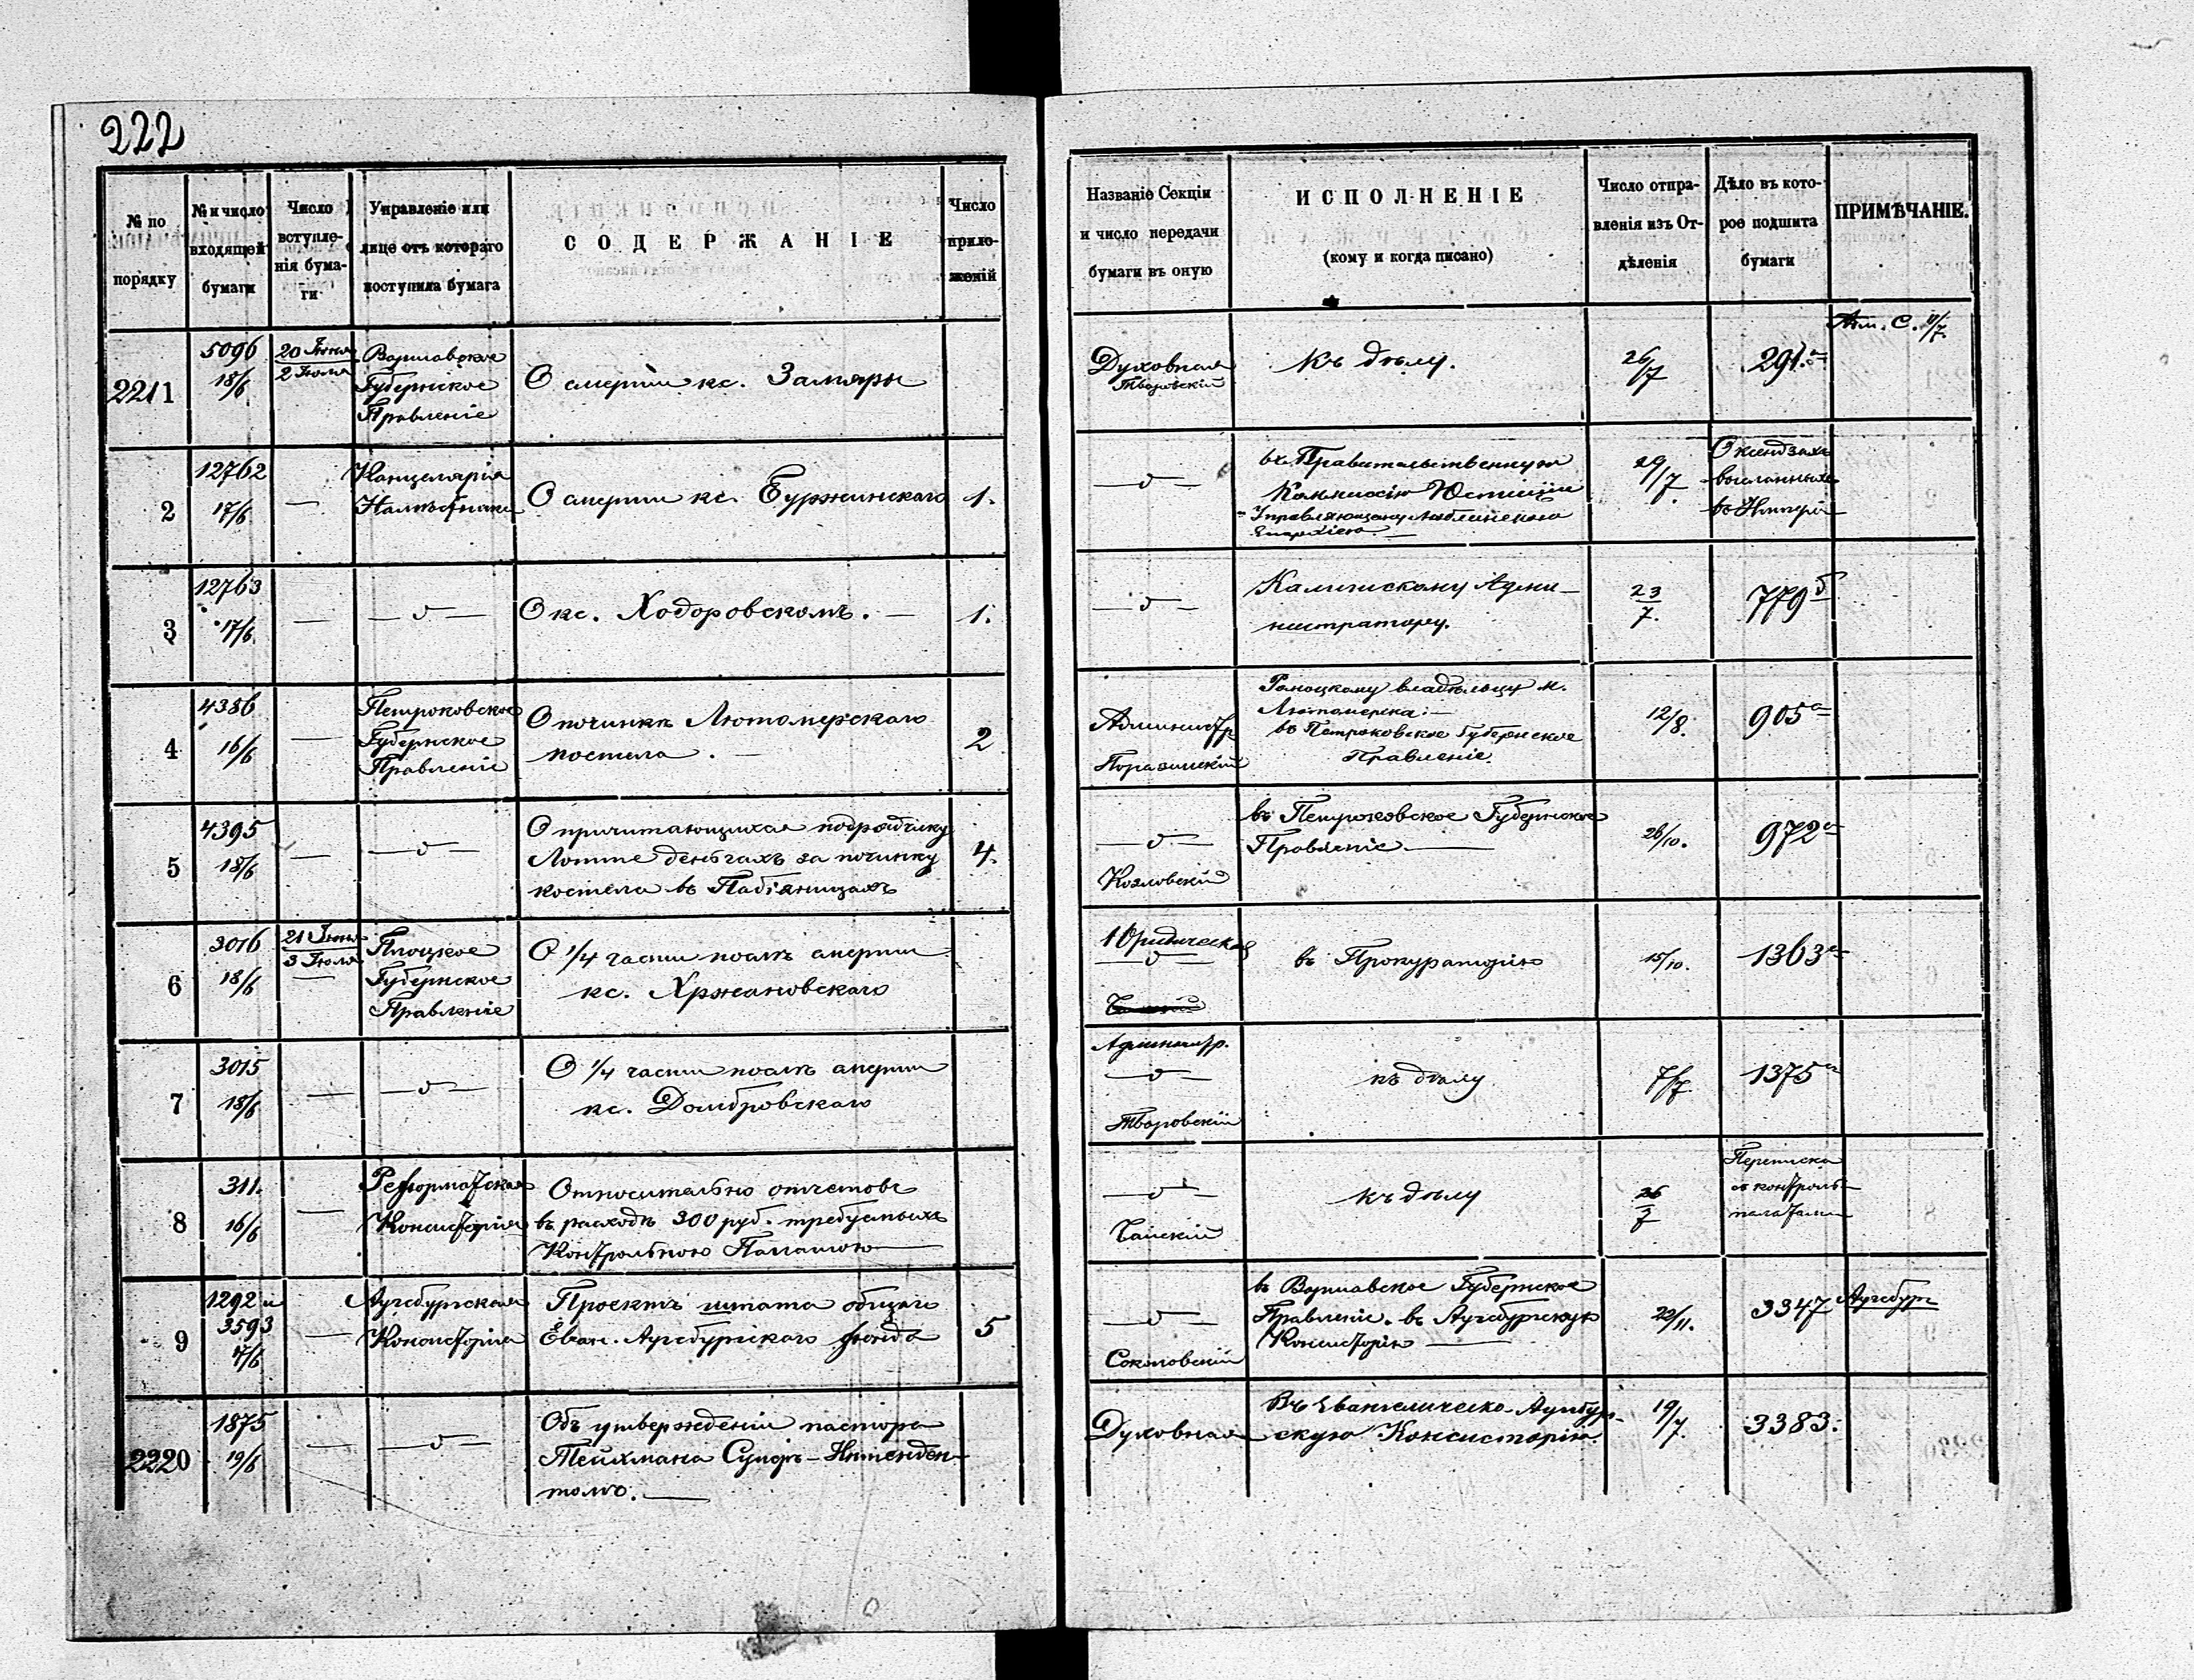 222
№ по порядку
№ и число входящей бумаги
Число вступле-
нія бума-
ги
Управленіе или
лице отъ котораго
поступила бумага
СОДЕРЖАНІЕ
Число
прило-
женій
Названіе Секціи
и число передачи
бумаги въ оную
ИСПОЛНЕНІЕ
(кому и когда писано)
Число отпра-
вленія изъ От-
дѣленія
Дѣло въ кото-
рое подшита
бумаги
ПРИМѢЧАНІЕ.
2211
5096
18/6
20 Іюня
2 Іюля
Варшавское
Губернское
Правленіе
О смерти кс. Замяры
Духовная
Творовскій
Къ дѣлу.
26/7
291.а
С. 11/7.
2
12762
17/6
—
Канцелярія
Намѣстника
О смерти кс. Буржинскаго
1.
—υ—
въ Правительственную
Коммисію Юстиціи
Управляющему Люблинскою
Епархіею. —
29/7.
О ксендзахъ
высланныхъ
въ Имперію
3
12763
17/6.
—
—υ—
О кс. Ходоровскомъ. —
1.
—υ—
Калишскому Адми-
нистратору.
23
7.
779б
4
4386
16/6
—
Петроковское
Губернское
Правленіе
О починкѣ Лютомерскаго
костела. —
2
Администр
владѣльцу м.
Лютомерска: —
въ Петроковское Губернское
Правленіе.
12/8.
905а
5
4395
18/6
—
—υ—
О причитающихся подрядчику
Лотте деньгахъ за починку
костела въ Пабіяницахъ
4.
—υ—
Козловскій
въ Петроковское Губернское
Правленіе —
26/10.
972а
6
3016
18/6
21 Іюня
3 Іюля
—
Плоцкое
Губернское
Правленіе
О 1/4 части послѣ смерти
кс. Хржановскаго
Юридическая
—υ—
въ Прокураторію
15/10.
1363а
7
3015
18/6
—
—υ—
О 1/4 части послѣ смерти
кс. Домбровскаго
Администр.
—υ—
Творовскій
къ дѣлу
7/7.
1375а
8
311.
16/6
—
Реформатская
Консисторія
Относительно отчетовъ
въ расходѣ 300 руб. требуемыхъ
Контрольною Палатою —
—υ—
къ дѣлу
26
7
Переписка
съ контроль-
палатами
9
1292 и
3593
17/6
—
Аугсбургская
Консисторія
Проектъ штата общаго
Еван. Аугсбургскаго фонда
5
—υ—
Соколовскій
въ Варшавское Губернское
Правленіе. въ Аугсбургскую
Консисторію —
22/11.
3347
Аугсбург
2220
1875
19/6
—
—υ—
Объ утвержденіи пастора
Тейхмана Суперъ-Интенден-
томъ. —
Духовная
Въ Евангелическо-Аугсбур-
скую Консисторію.
19/7.
3383.